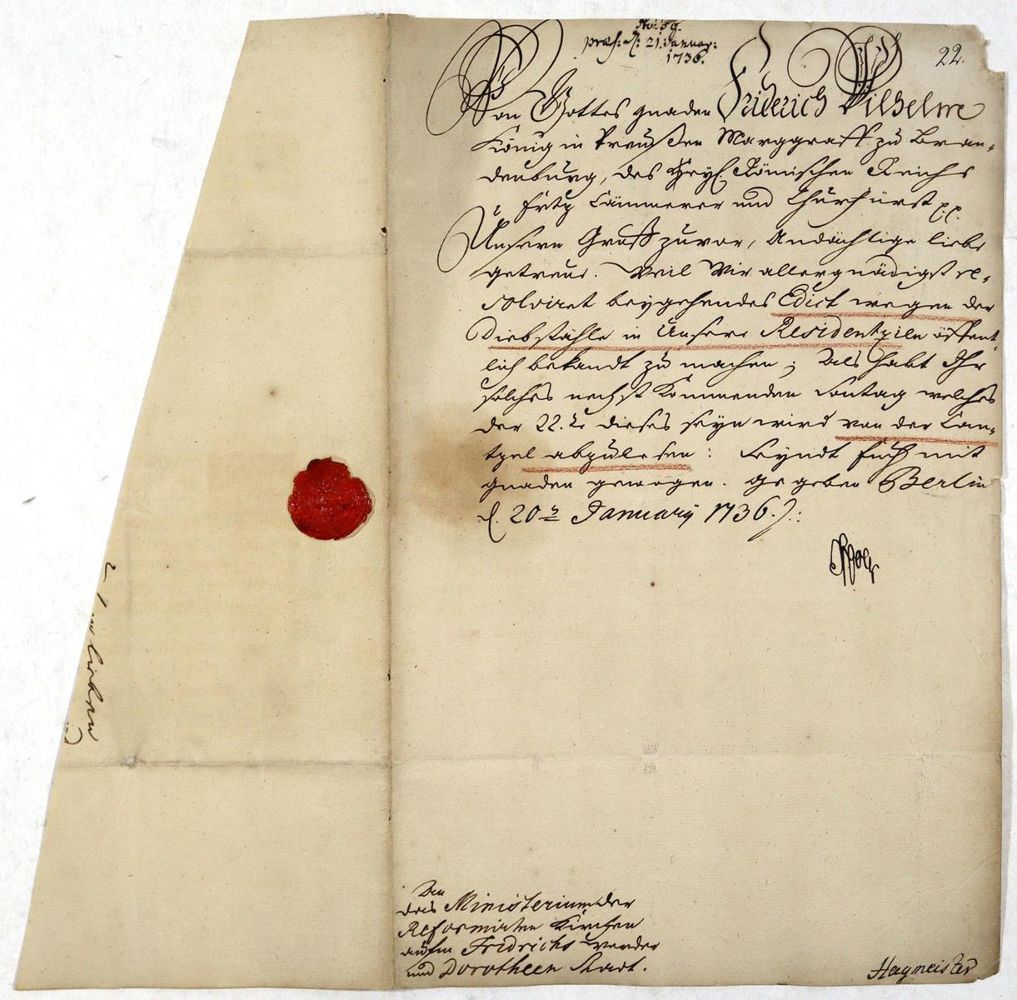 No: 59.
præs: d: 21. Januar:
1736.
22.
Von Gottes gnaden Friderich Wilhelm
König in Preußen Marggraff zu Bran-
denburg, des Heyl. Römischen Reichs
Ertz Cämmerer und Churfürst pp.
Unsern Gruß zuvor, Andächtige liebe
getreue. Weil Wir allergnädigst re-
solviret beygehendes Edict wegen der
Diebstähle in Unsere Residentzien öffent-
lich bekandt zu machen; Als habt Ihr
solches nechst kommenden Sontag welches
der 22.te dieses seyn wird von der Can-
tzel abzulesen: Seyndt Euch mit
gnaden gewogen. Gegeben Berlin
d. 20 January 1736.
An
das Ministerium der
Reformirten Kirchen
aufm Fridrichs Werder
und Dorotheen Stadt.
Haymeister